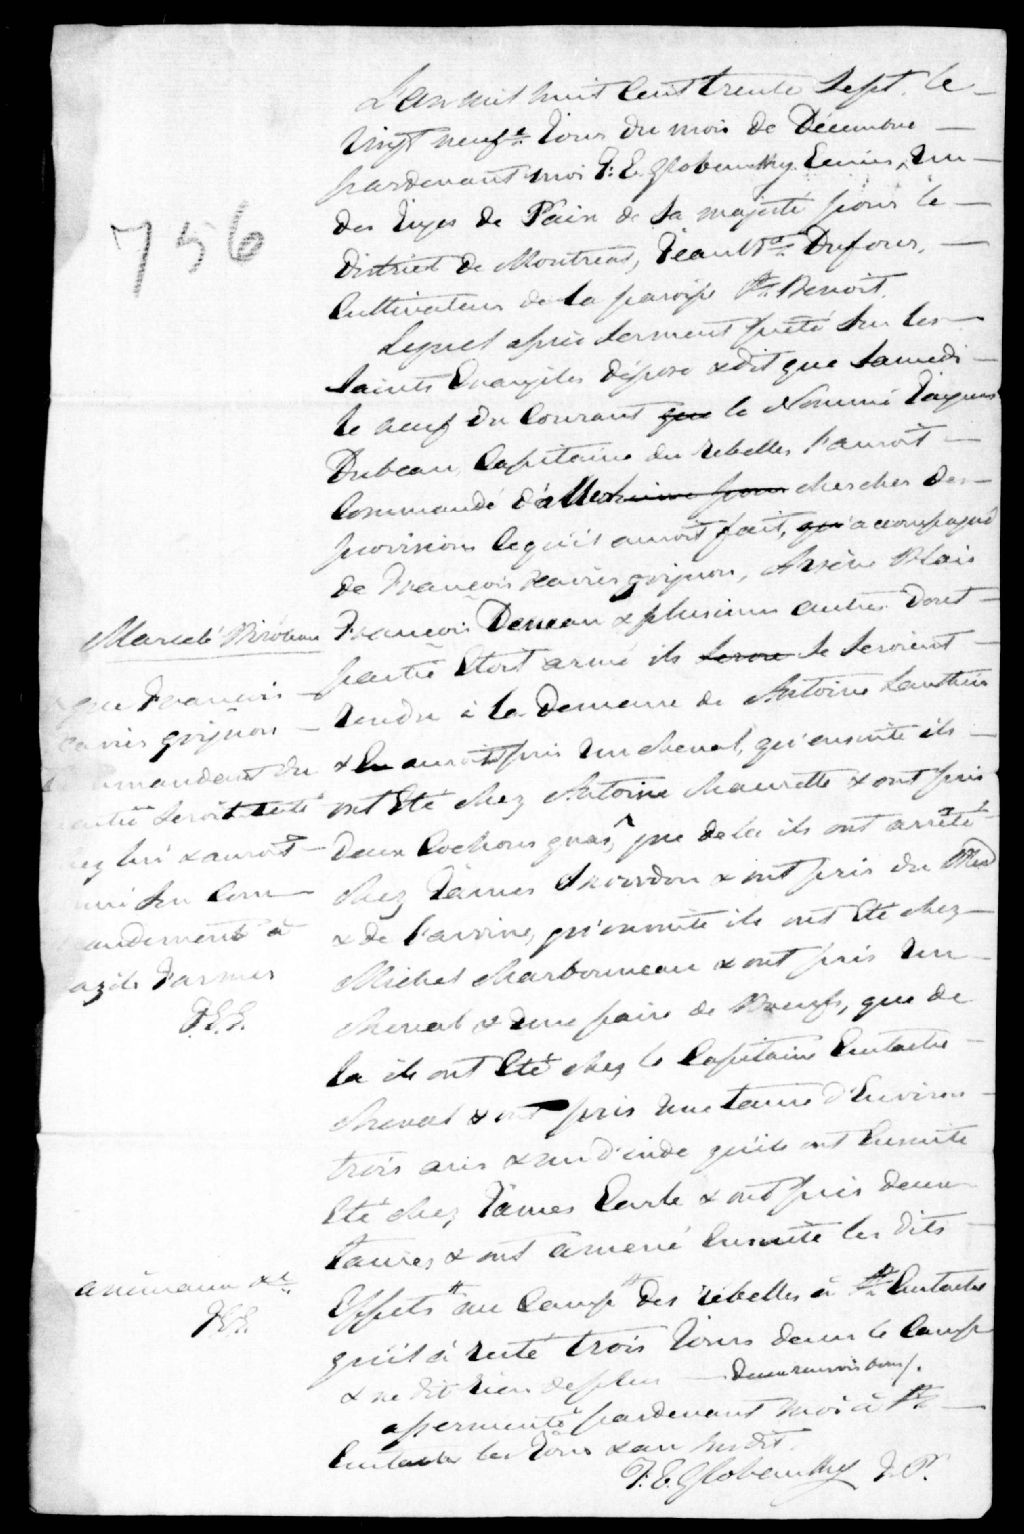 756
L'an mil huit cent trente Sept. le
vingt neufe. Jour du mois de Décembre
pardevant moi F: E. Globenskÿ Ecuier, un
des Juges de Paix de Sa majesté pour le
District de Montreal, Jean Bte. Dufour,
Cultivateur de la paroisse St. Benoit.
Lequel après serment prété Sur les
Saints Evangiles dépose & dit que Samedi
le neuf du Courant que le Nommé Jaques
Dubeau, Capitaine des rebelles l'auroit
Commandé d'aller chercher des
provisions ce qu'il auroit fait, qu'acompagné
de François Xavier grignon, Arsène Blais
François Deneau & plusieurs autres dont
partie étoit armé ils se seroient
rendu à la demeure de Antoine Lauthier
& en auroit pris un cheval, qu'ensuite ils
ont été chez Antoine Chaurette & ont pris
deux Cochons gras, que de la ils ont arrété
chez James Snowdon & ont pris du Bled
& de l'avoine, qu'ensuite ils ont été chez
Michel Charbonneau & ont pris un
cheval & une paire de Boeufs, que de
la ils ont été chez le Capitaine Eustache
Cheval & ont pris une taure d'Environ
trois ans & un d'inde qu'ils ont Ensuite
été chez James Earle & ont pris deux
taures & ont amené Ensuite les dits
Effets au Camp des rébelles à St. Eustache
qu'il a resté trois Jours dans le Camp
& ne dit rien de plus — deux renvois bons.
assermenté pardevant moi à St.
Eustache les Jour & an Susdit.
F. E. Globenskÿ J. P.
Marcelé Birobeau
que Francois
Xavier grignon
commandant du
partie seroit resté
chez lui & auroit
Com
mandement à
Farmer
F.E.G.
animaux &c.
F.E.G.